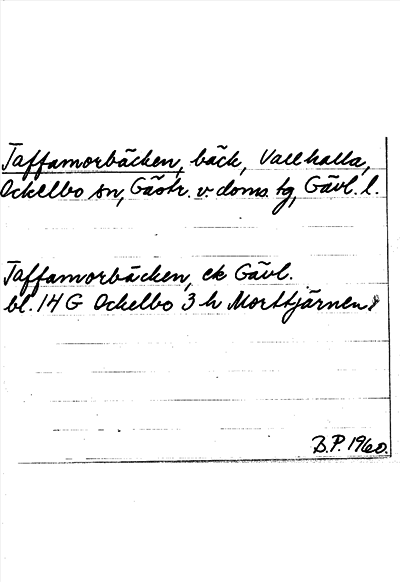 Taffamorbäcken, bäck, Vallhalla,
Ockelbo sn, Gästr. v. doms. tg, Gävl. l.
Taffamorbäcken, ek Gävl.
bl. 14 G Ockelbo 3 h Morttjärnen
B.P. 1960.